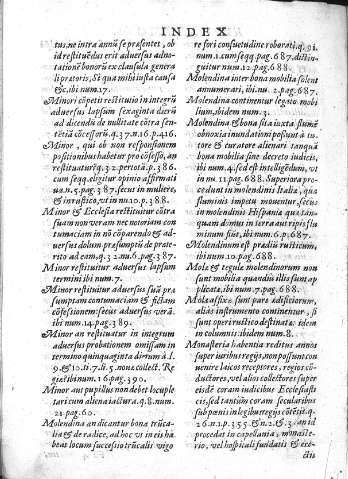 INDEX
tus, ne intra annũ se præsentet, ob
id restituẽdus erit aduersus adno-
tationẽ bonorũ ex clausula genera
li prætoris, Si qua mihi iusta causa
&c. ibi num. 17.
Minori cõpetit restitutio in integrũ
aduersus lapsum sexaginta dierũ
ad dicendũ de nullitate cõtra sen-
tẽtiã cõcessorũ. q. 37. n. 16. p. 416.
Minor, qui ob non responsionem
positionibus habetur pro cõfesso, an
restituatur q. 32. per tota. p. 386.
cum seqq. eligitur opinio affirmati
ua n. 5. pag. 387. secus in muliere,
& in rustico, vt in n. 10. p. 388.
Minor & Ecclesia restituitur cõtra
suam non veram nec notoriam con
tumaciam in nõ cõparendo & ad-
uersus dolum præsumptũ de præte-
rito ad eam, q. 32. nu. 6. pag. 387.
Minor restituitur aduersus lapsum
termini ibi num. 7.
Minor restituitur aduersus suã præ
sumptam contumaciam & fictam
cõfessionem: secus aduersus verã.
ibi num. 14. pag. 389.
Minor an restituatur in integrum
aduersus probationem omissam in
termino quinquaginta dierum à l.
9. & 10. ti. 7. li. 5. noua collect. Re
giæ tibi num. 16. pag. 390.
Minor aut pupillus non debet locuple
tari cum aliena iactura. q. 8. num.
21. pag. 60.
Molendina an dicantur bona trũca-
lia & de radice, ad hoc vt in eis ha
beat locum successio trũcalis vigo
re fori consuetudine roborati, q. 91.
num. 1. cum seqq. pag. 687. distin-
guitur num. 12. pag. 688.
Molendina inter bona mobilia solent
annumerari, ibi nu. 2. pag. 687.
Molendina continentur legato mobi
lium, ibidem num. 3.
Molendina & bona sita iuxta flumẽ
obnoxia inundationi possunt à tu-
tore & curatore alienari tanquã
bona mobilia sine decreto iudicis,
ibi nu. 4. sed est intelligẽdum, vt
in nu. 13. pag. 688. Superiora pro-
cedunt in molendinis Italiæ, quæ
fluminis impetu mouentur, secus
in molendinis Hispaniæ quæ tan-
quam domus in terra aut ripis flu
minum sitæ, ibi num. 6. p. 687.
Molendinum est prædiũ rusticum,
ibi num. 10. pag. 688.
Mola & tegulæ molendinorum non
sunt mobilia quandiu illis sunt ap
plicata, ibi num. 7. pag. 688.
sunt pars ædificiorum,
aliàs instrumento continentur, si
sunt opere rustico destinatæ: idem
in columnis ibidem num. 8.
Monasteria habentia reditus annos
super iuribus regijs, non possunt con
uenire laicos receptores, regios cõ-
ductores, vel alios collectores super
eisdẽ coram iudicibus Ecclesiasti
cis, sed tantùm coram sæcularibus
sub pœnis in legibus regijs cõtẽtis. q.
26. n. 1. p. 355. & n. 2. & 3. an id
procedat in capellania, monaste-
rio, vel hospitali fundatis & exe-
ctis